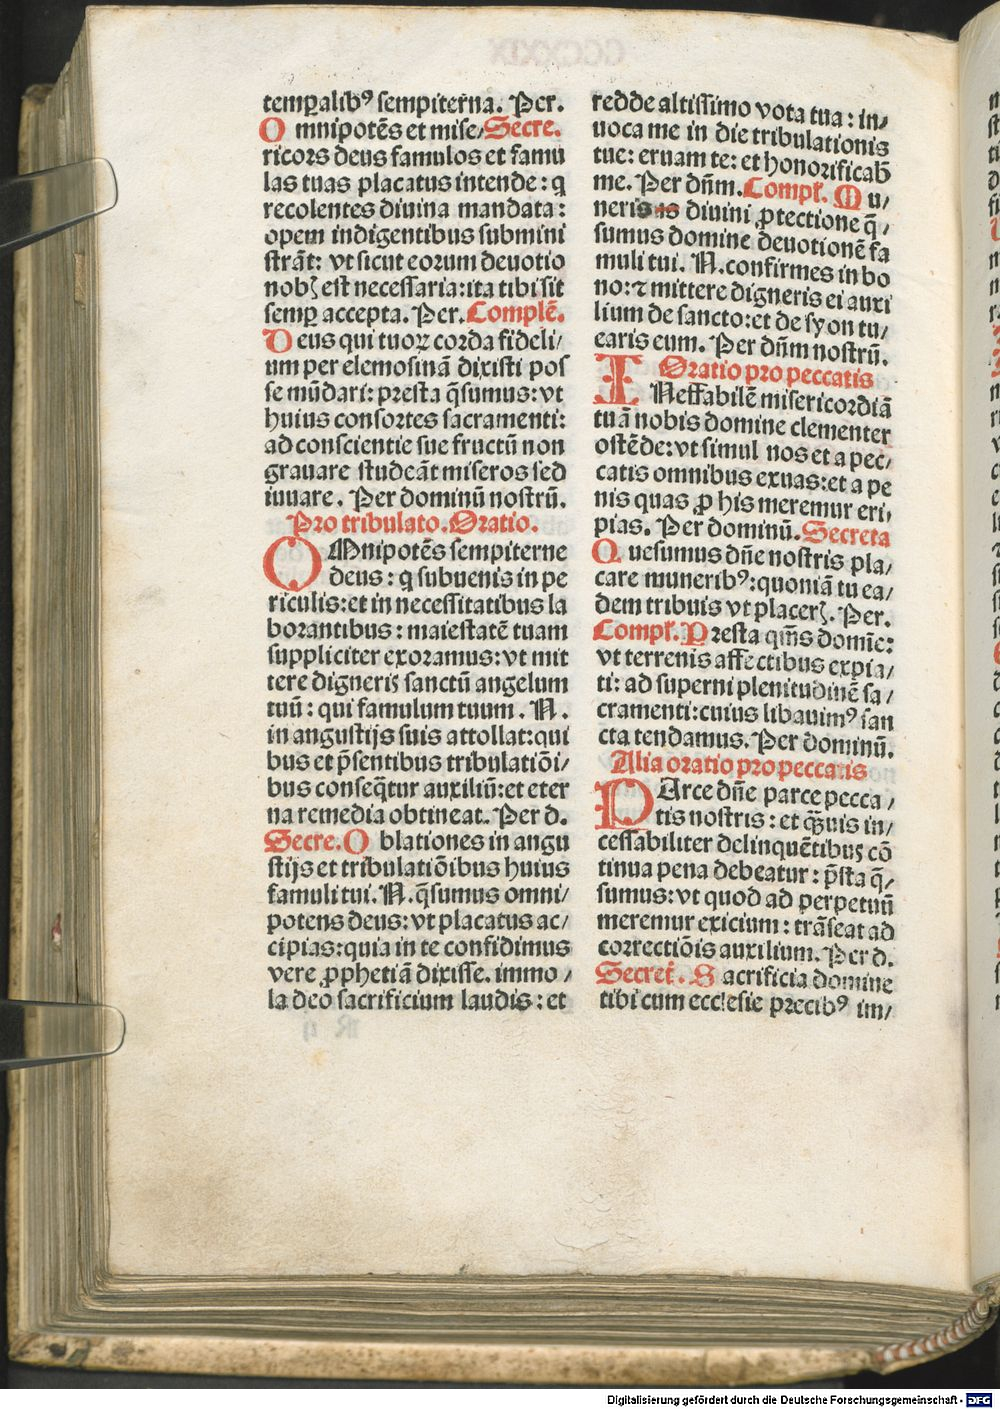 temꝑalibꝰ sempiterna. Per.
Omnipotēs et mise/ Secre.
ricors deus famulos et famu
las tuas placatus intende: q
recolentes diuina mandata:
opem indigentibus submini
strāt: vt sicut eorum deuotio
nobꝫ est necessaria: ita tibi sit
semꝑ accepta. Per. Complē.
Deus qui tuoꝝ corda fideli/
um per elemosinā dixisti pos
se mūdari: presta q̄sumus: vt
huius consortes sacramenti:
ad conscientie sue fructū non
grauare studeāt miseros sed
iuuare. Per dominū nostrū.
Pro tribulato. Oratio.
OMnipotēs sempiterne
deus: q subuenis in pe
riculis: et in necessitatibus la
borantibus: maiestatē tuam
suppliciter exoramus: vt mit
tere digneris sanctū angelum
tuū: qui famulum tuum. N.
in angustijs suis attollat: qui
bus et p̄sentibus tribulatiōi/
bus conseq̄tur auxiliū: et eter
na remedia obtineat. Per d.
Secre. Oblationes in angu
stijs et tribulatiōibus huius
famuli tui. N. q̄sumus omni/
potens deus: vt placatus ac/
cipias: quia in te confidimus
vere ꝓphetiā dixisse. immo/
la deo sacrificium laudis: et
redde altissimo vota tua: in/
uoca me in die tribulationis
tue: eruam te: et honorificab̄
me. Per dn̄m. Compl'. Mu/
neris is diuini ꝓtectione q̄/
sumus domine deuotionē fa
muli tui. N. confirmes in bo
no: ⁊ mittere digneris ei auxi
lium de sancto: et de syon tu/
earis eum. Per dn̄m nostrū.
Oratio pro peccatis
INeffabilē misericordiā
tuā nobis domine clementer
ostēde: vt simul nos et a pec/
catis omnibus exuas: et a pe
nis quas ꝓ his meremur eri/
pias. Per dominū. Secreta
Quesumus dn̄e nostris pla/
care muneribꝰ: quoniā tu ea/
dem tribuis vt placerꝫ. Per.
Compl'. Presta qm̄s domīe:
vt terrenis affectibus expia/
ti: ad superni plenitudinē sa/
cramenti: cuius libauimꝰ san
cta tendamus. Per dominū.
Alia oratio pro peccatis
PArce dn̄e parce pecca/
tis nostris: et quāuis in/
cessabiliter delinquētibus cō
tinua pena debeatur: p̄sta q̄/
sumus: vt quod ad perpetuū
meremur exicium: trāseat ad
correctiōis auxilium. Per d.
Secret'. Sacrificia domine
tibi cum ecclesie precibꝰ im/
Digitalisierung gefördert durch die Deutsche Forschungsgemeinschaft - DFG